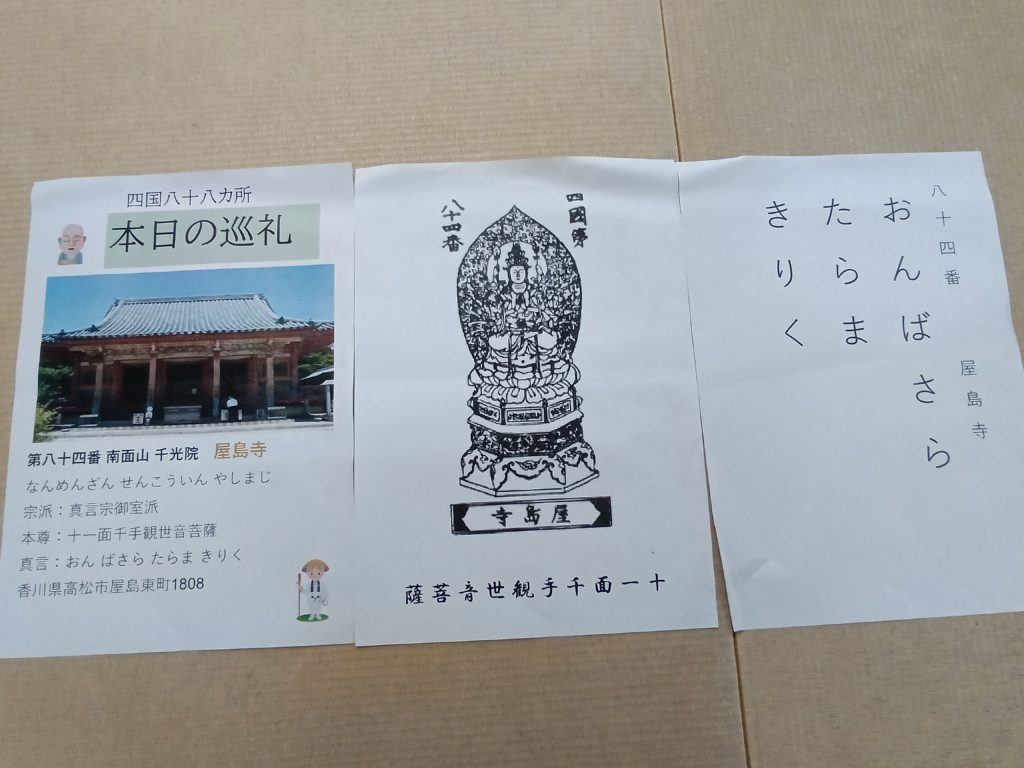 四国八十八カ所
本日の巡礼
第八十四番 南面山 千光院 屋島寺
なんめんざん せんこういん やしまじ
宗派：真言宗御室派
本尊：十一面千手観世音菩薩
真言：おん ばさら たらま きりく
香川県高松市屋島東町1808
四國第
八十四番
寺島屋
薩菩音世観手千面一十
八十四番 屋島寺
おんばさら
たらま
きりく